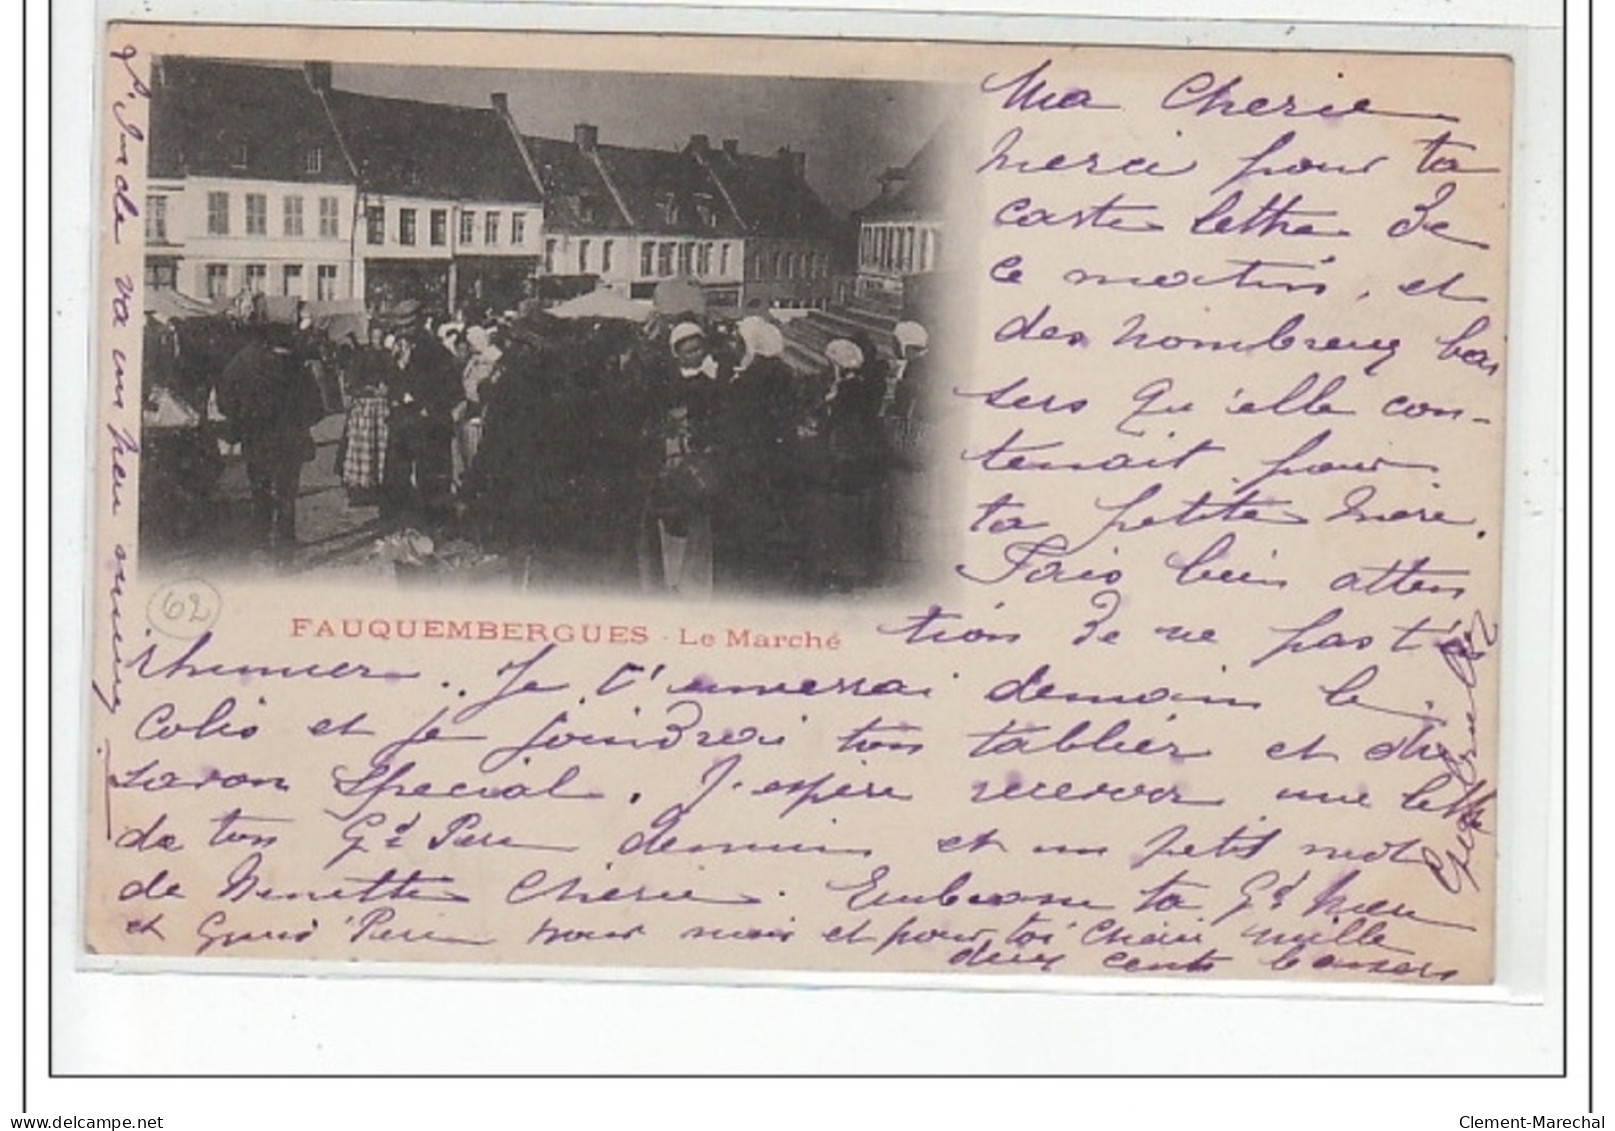 Ma Cherie
Merci pour ta
carte lettre de
ce matin, et
des nombreux bai
sers qu'elle con-
tenait pour
ta petite Mère.
Fais bien atten
tion de ne pas t'en
rhumer.. Je t'enverrai demain le
Colis et je joindrai ton tablier et
savon special. J'espère recevoir une lettre
de ton Gd Père demain et un petit mot
de Ninette Cherie. Embrasse ta Gd Mère
et Grand Père pour moi et pour toi Cherie mille
deux cents baisers
va un peu mieux.
FAUQUEMBERGUES - Le Marché
62
Clement-Marechal
www.delcampe.net